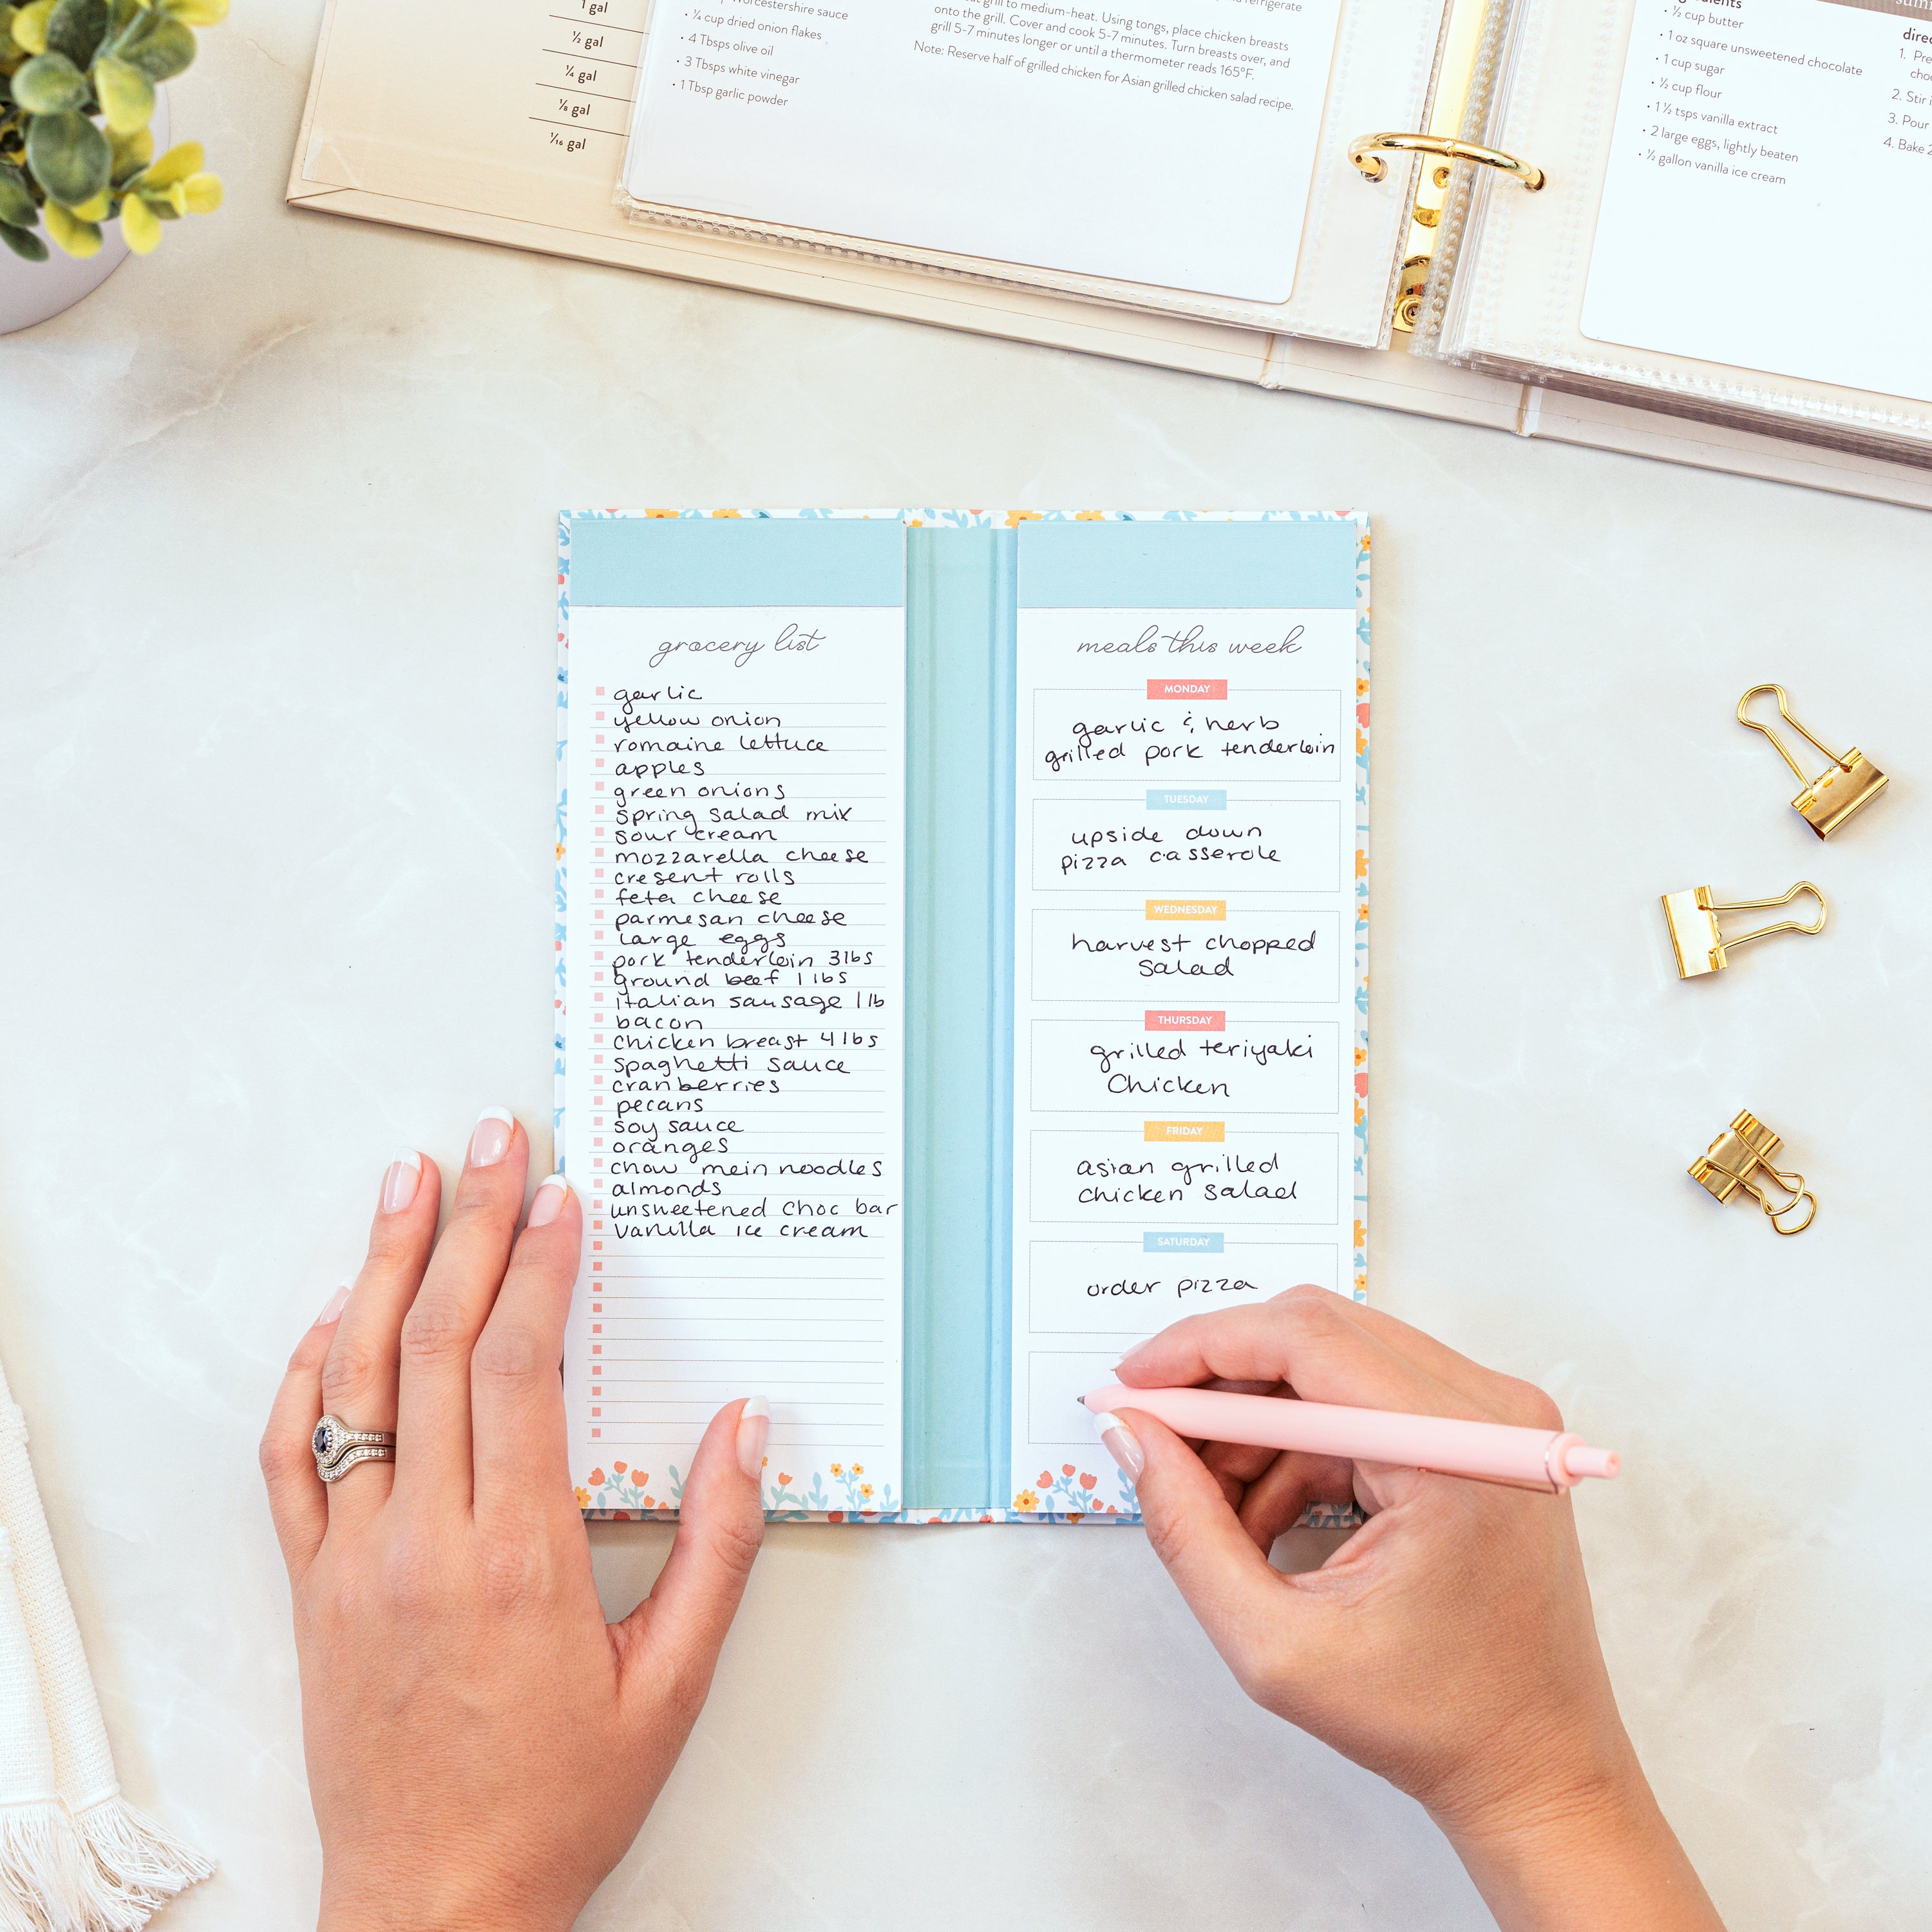 1 gal
½ gal
¼ gal
⅛ gal
1/16 gal
Worcestershire sauce
• ¼ cup dried onion flakes
• 4 Tbsps olive oil
• 3 Tbsps white vinegar
• 1 Tbsp garlic powder
refrigerate
grill to medium-heat. Using tongs, place chicken breasts
onto the grill. Cover and cook 5-7 minutes. Turn breasts over, and
grill 5-7 minutes longer or until a thermometer reads 165°F.
Note: Reserve half of grilled chicken for Asian grilled chicken salad recipe.
• ½ cup butter
• 1 oz square unsweetened chocolate
• 1 cup sugar
• ½ cup flour
• 1 ½ tsps vanilla extract
• 2 large eggs, lightly beaten
• ½ gallon vanilla ice cream
1.
2. Stir
3. Pour
4. Bake
grocery list
garlic
yellow onion
romaine lettuce
apples
green onions
spring salad mix
sour cream
mozzarella cheese
cresent rolls
feta cheese
parmesan cheese
large eggs
pork tenderloin 3lbs
ground beef 1 lbs
italian sausage 1 lb
bacon
chicken breast 4 lbs
spaghetti sauce
cranberries
pecans
soy sauce
oranges
chow mein noodles
almonds
unsweetened choc bar
vanilla ice cream
meals this week
MONDAY
garlic & herb
grilled pork tenderloin
TUESDAY
upside down
pizza casserole
WEDNESDAY
harvest chopped
salad
THURSDAY
grilled teriyaki
Chicken
FRIDAY
asian grilled
chicken salad
SATURDAY
order pizza